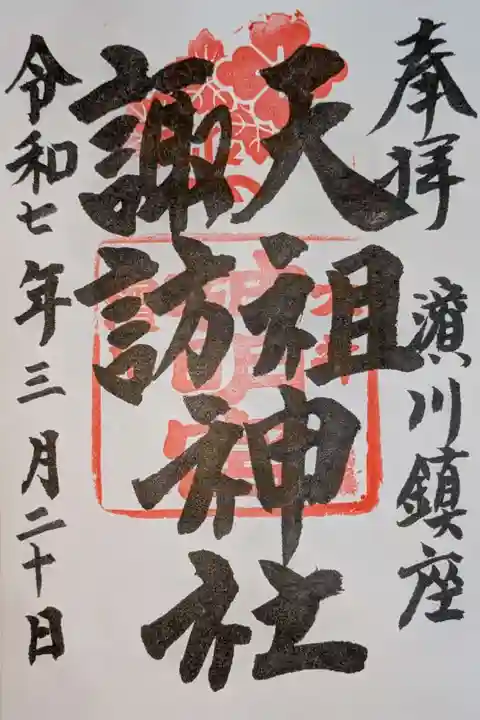 奉拝
濱川鎮座
天祖
諏訪
神社
令和七年三月二十日